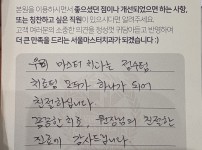 본원을 이용하시면서 좋으셨던 점이나 개선되었으면 하는 사항,
또는 칭찬하고 싶은 직원이 있으시다면 알려주세요.
고객 여러분의 소중한 의견을 정성껏 귀담아듣고 반영하여
더 큰 만족을 드리는 서울마스터치과가 되겠습니다 :)
우리 마스터 치과는 접수팀
치료팀 모두가 하나가 되어
친절하십니다
꼼꼼한 치료 원장님의 친절한
진료에 감사드립니다